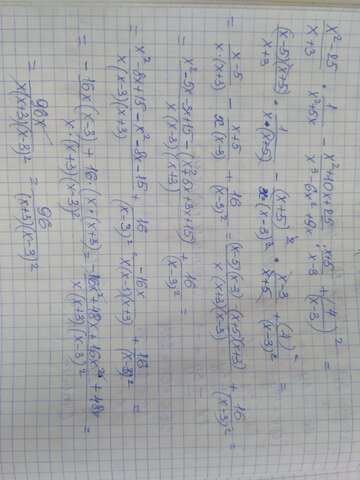 x²-25 / x+3 · 1 / x²+5x - x²+10x+25 / x³-6x²+9x : x+5 / x-3 + (4 / x-3)² =
(x-5)(x+5) / x+3 · 1 / x·(x+5) - (x+5)² / x·(x-3)² · x-3 / x+5 + (4)² / (x-3)² =
= x-5 / x·(x+3) - x+5 / x(x-3) + 16 / (x-3)² = (x-5)(x-3)-(x+5)(x+3) / x(x+3)(x-3) + 16 / (x-3)² =
= x²-5x-3x+15-(x²+5x+3x+15) / x(x-3)(x+3) + 16 / (x-3)² =
= x²-8x+15-x²-8x-15 / x(x-3)(x+3) + 16 / (x-3)² = -16x / x(x-3)(x+3) + 16 / (x-3)² =
= -16x(x-3)+16·(x·(x+3) / x·(x+3)(x-3)² = -16x²+48x+16x²+48x / x(x+3)(x-3)² =
= 96x / x(x+3)(x-3)² = 96 / (x+3)(x-3)²